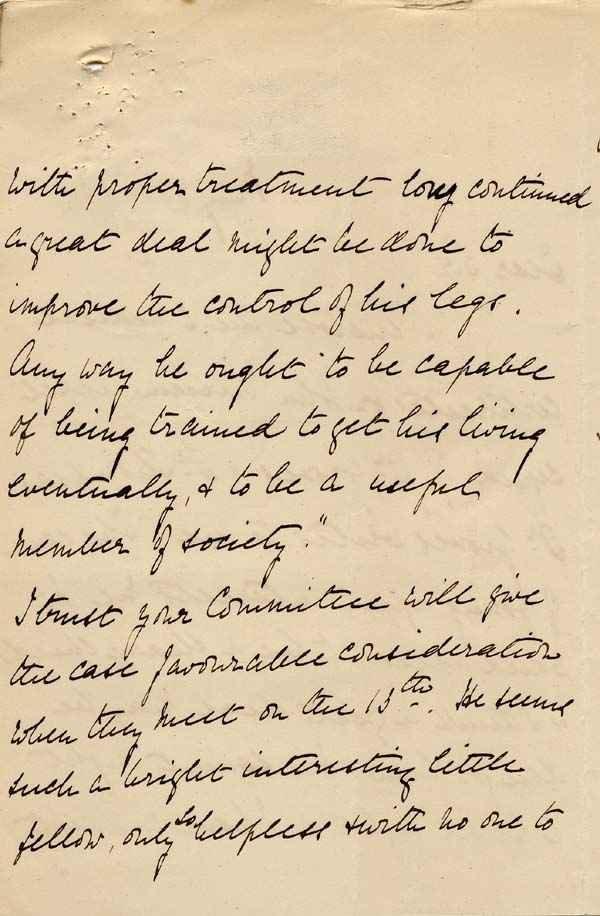 with proper treatment long continued
a great deal might be done to
improve the control of his legs.
Any way he ought to be capable
of being trained to get his living
eventually, & to be a useful
member of society."
I trust your Committee will give
the case favourable consideration
when they meet on the 13th. He seems
such a bright interesting little
fellow, only so helpless & with no one to